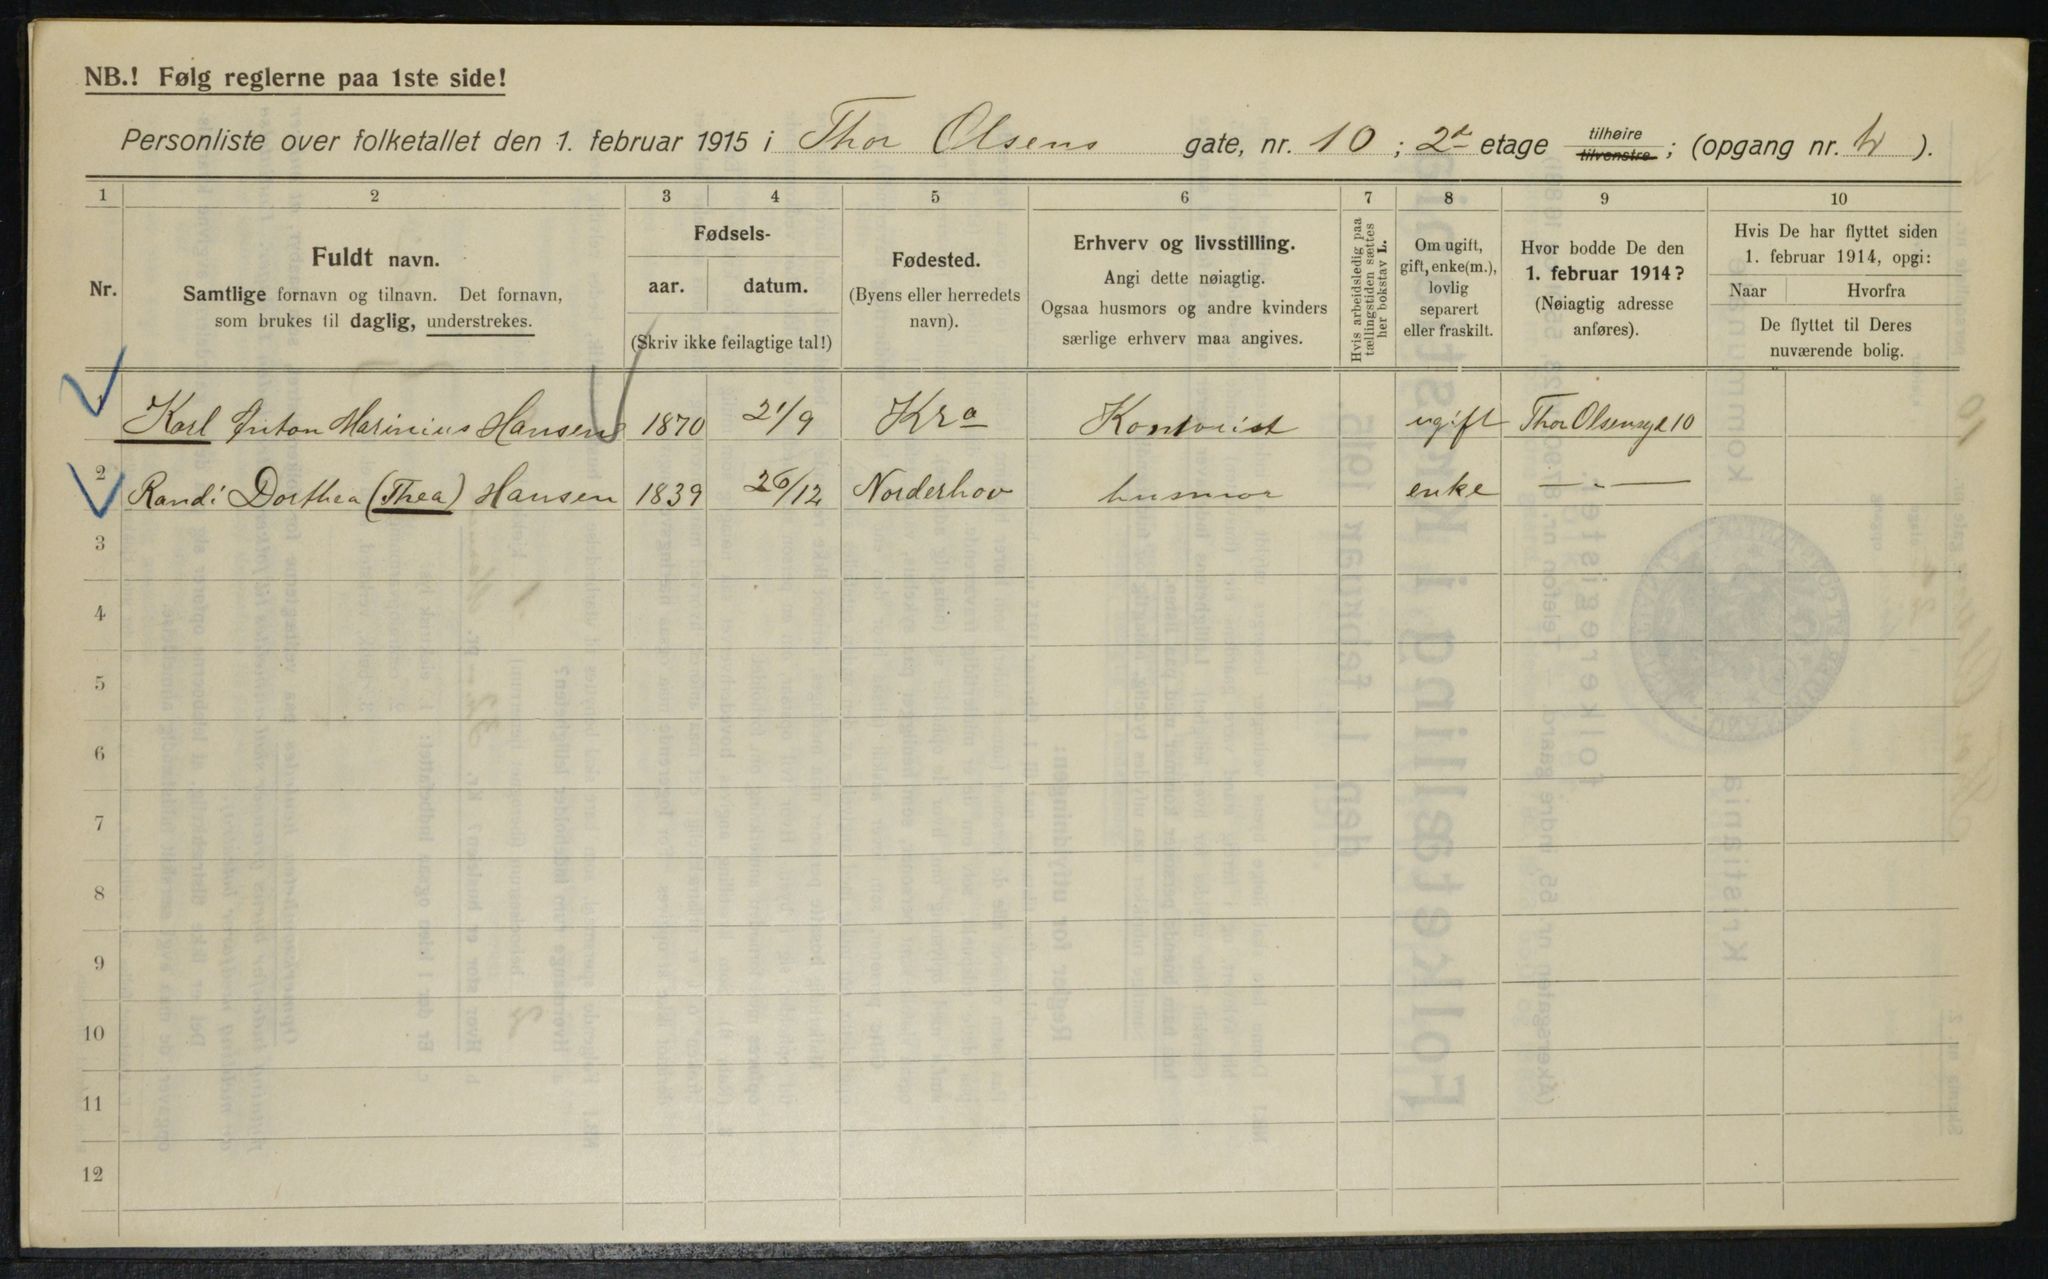 NB.! Følg reglerne paa 1ste side!
Personliste over folketallet den 1. februar 1915 i Thor Olsens gate, nr. 10 ; 2de etage tilhøire tilvenstre ; (opgang nr. ).
1 2 3 4 5 6 7 8 9 10
Nr.
Fuldt navn.
Samtlige fornavn og tilnavn. Det fornavn,
som brukes til daglig, understrekes.
Fødsels-
aar. datum.
(Skriv ikke feilagtige tal!)
Fødested.
(Byens eller herredets
navn).
Erhverv og livsstilling.
Angi dette nøiagtig.
Ogsaa husmors og andre kvinders
særlige erhverv maa angives.
Hvis arbeidsledig paa
tællingstiden sættes
her bokstav L.
Om ugift,
gift, enke(m.),
lovlig
separert
eller fraskilt.
Hvor bodde De den
1. februar 1914?
(Nøiagtig adresse
anføres).
Hvis De har flyttet siden
1. februar 1914, opgi:
Naar Hvorfra
De flyttet til Deres
nuværende bolig.
1 Karl Anton Marinius Hansen 1870 21/9 Kra Kontorist ugift Thor Olsensgt 10
2 Randi Dorthea (Thea) Hansen 1839 26/12 Norderhov husmor enke — „ —
3
4
5
6
7
8
9
10
11
12